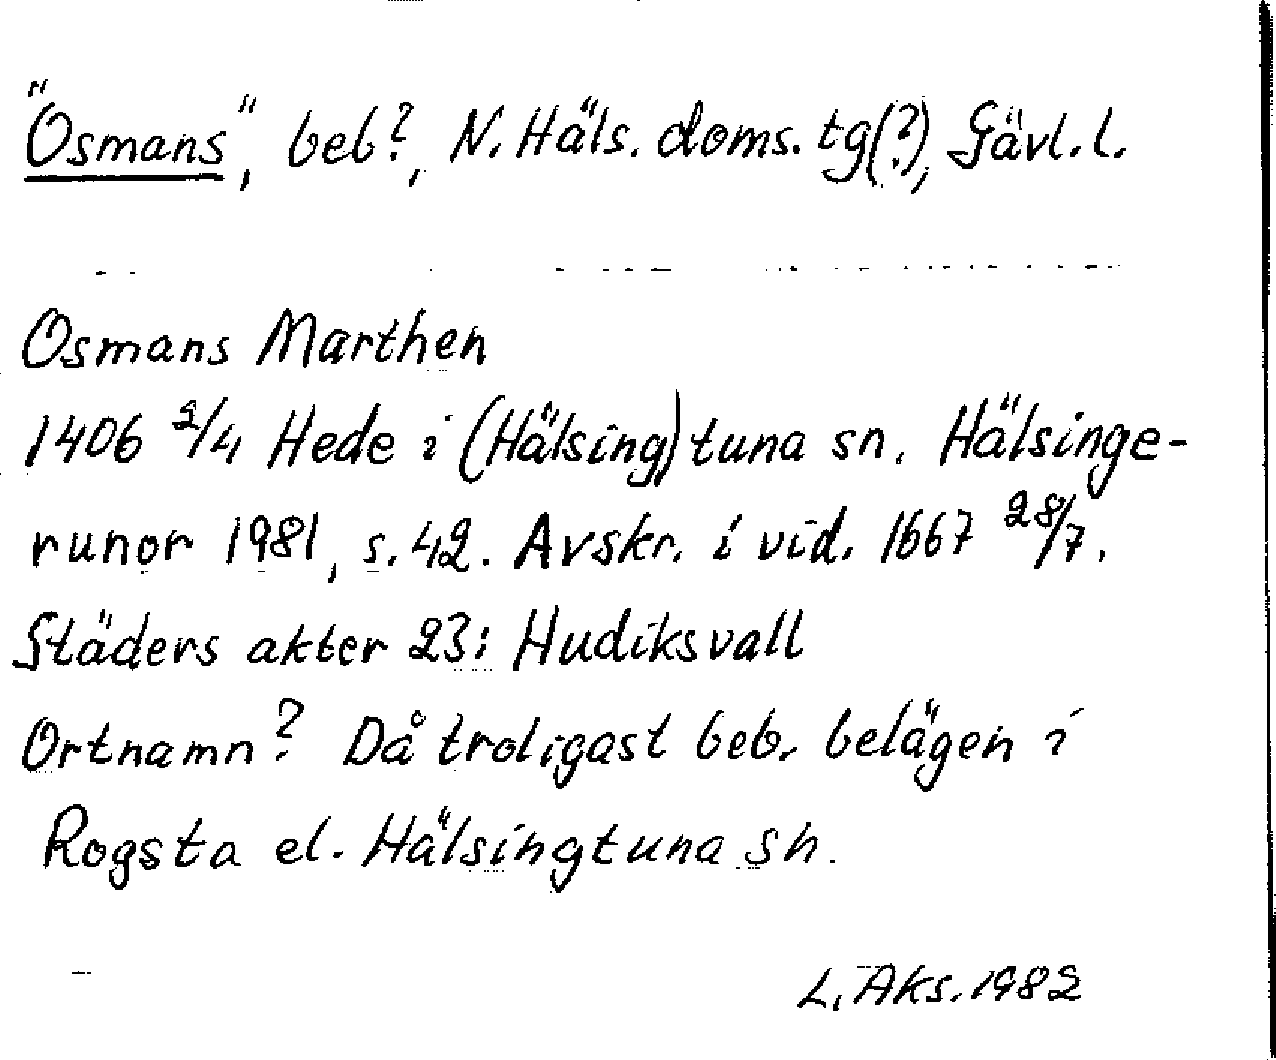 "Osmans", beb?, N. Häls. doms. tg(?), Gävl. l.
Osmans Marthen
1406 2/4 Hede i (Hälsing)tuna sn. Hälsinge-
runor 1981, s. 42. Avskr. i vid. 1667 28/7.
Städers akter 23: Hudiksvall
Ortnamn? Då troligast beb. belägen i
Rogsta el. Hälsingtuna sn.
L. Aks. 1982